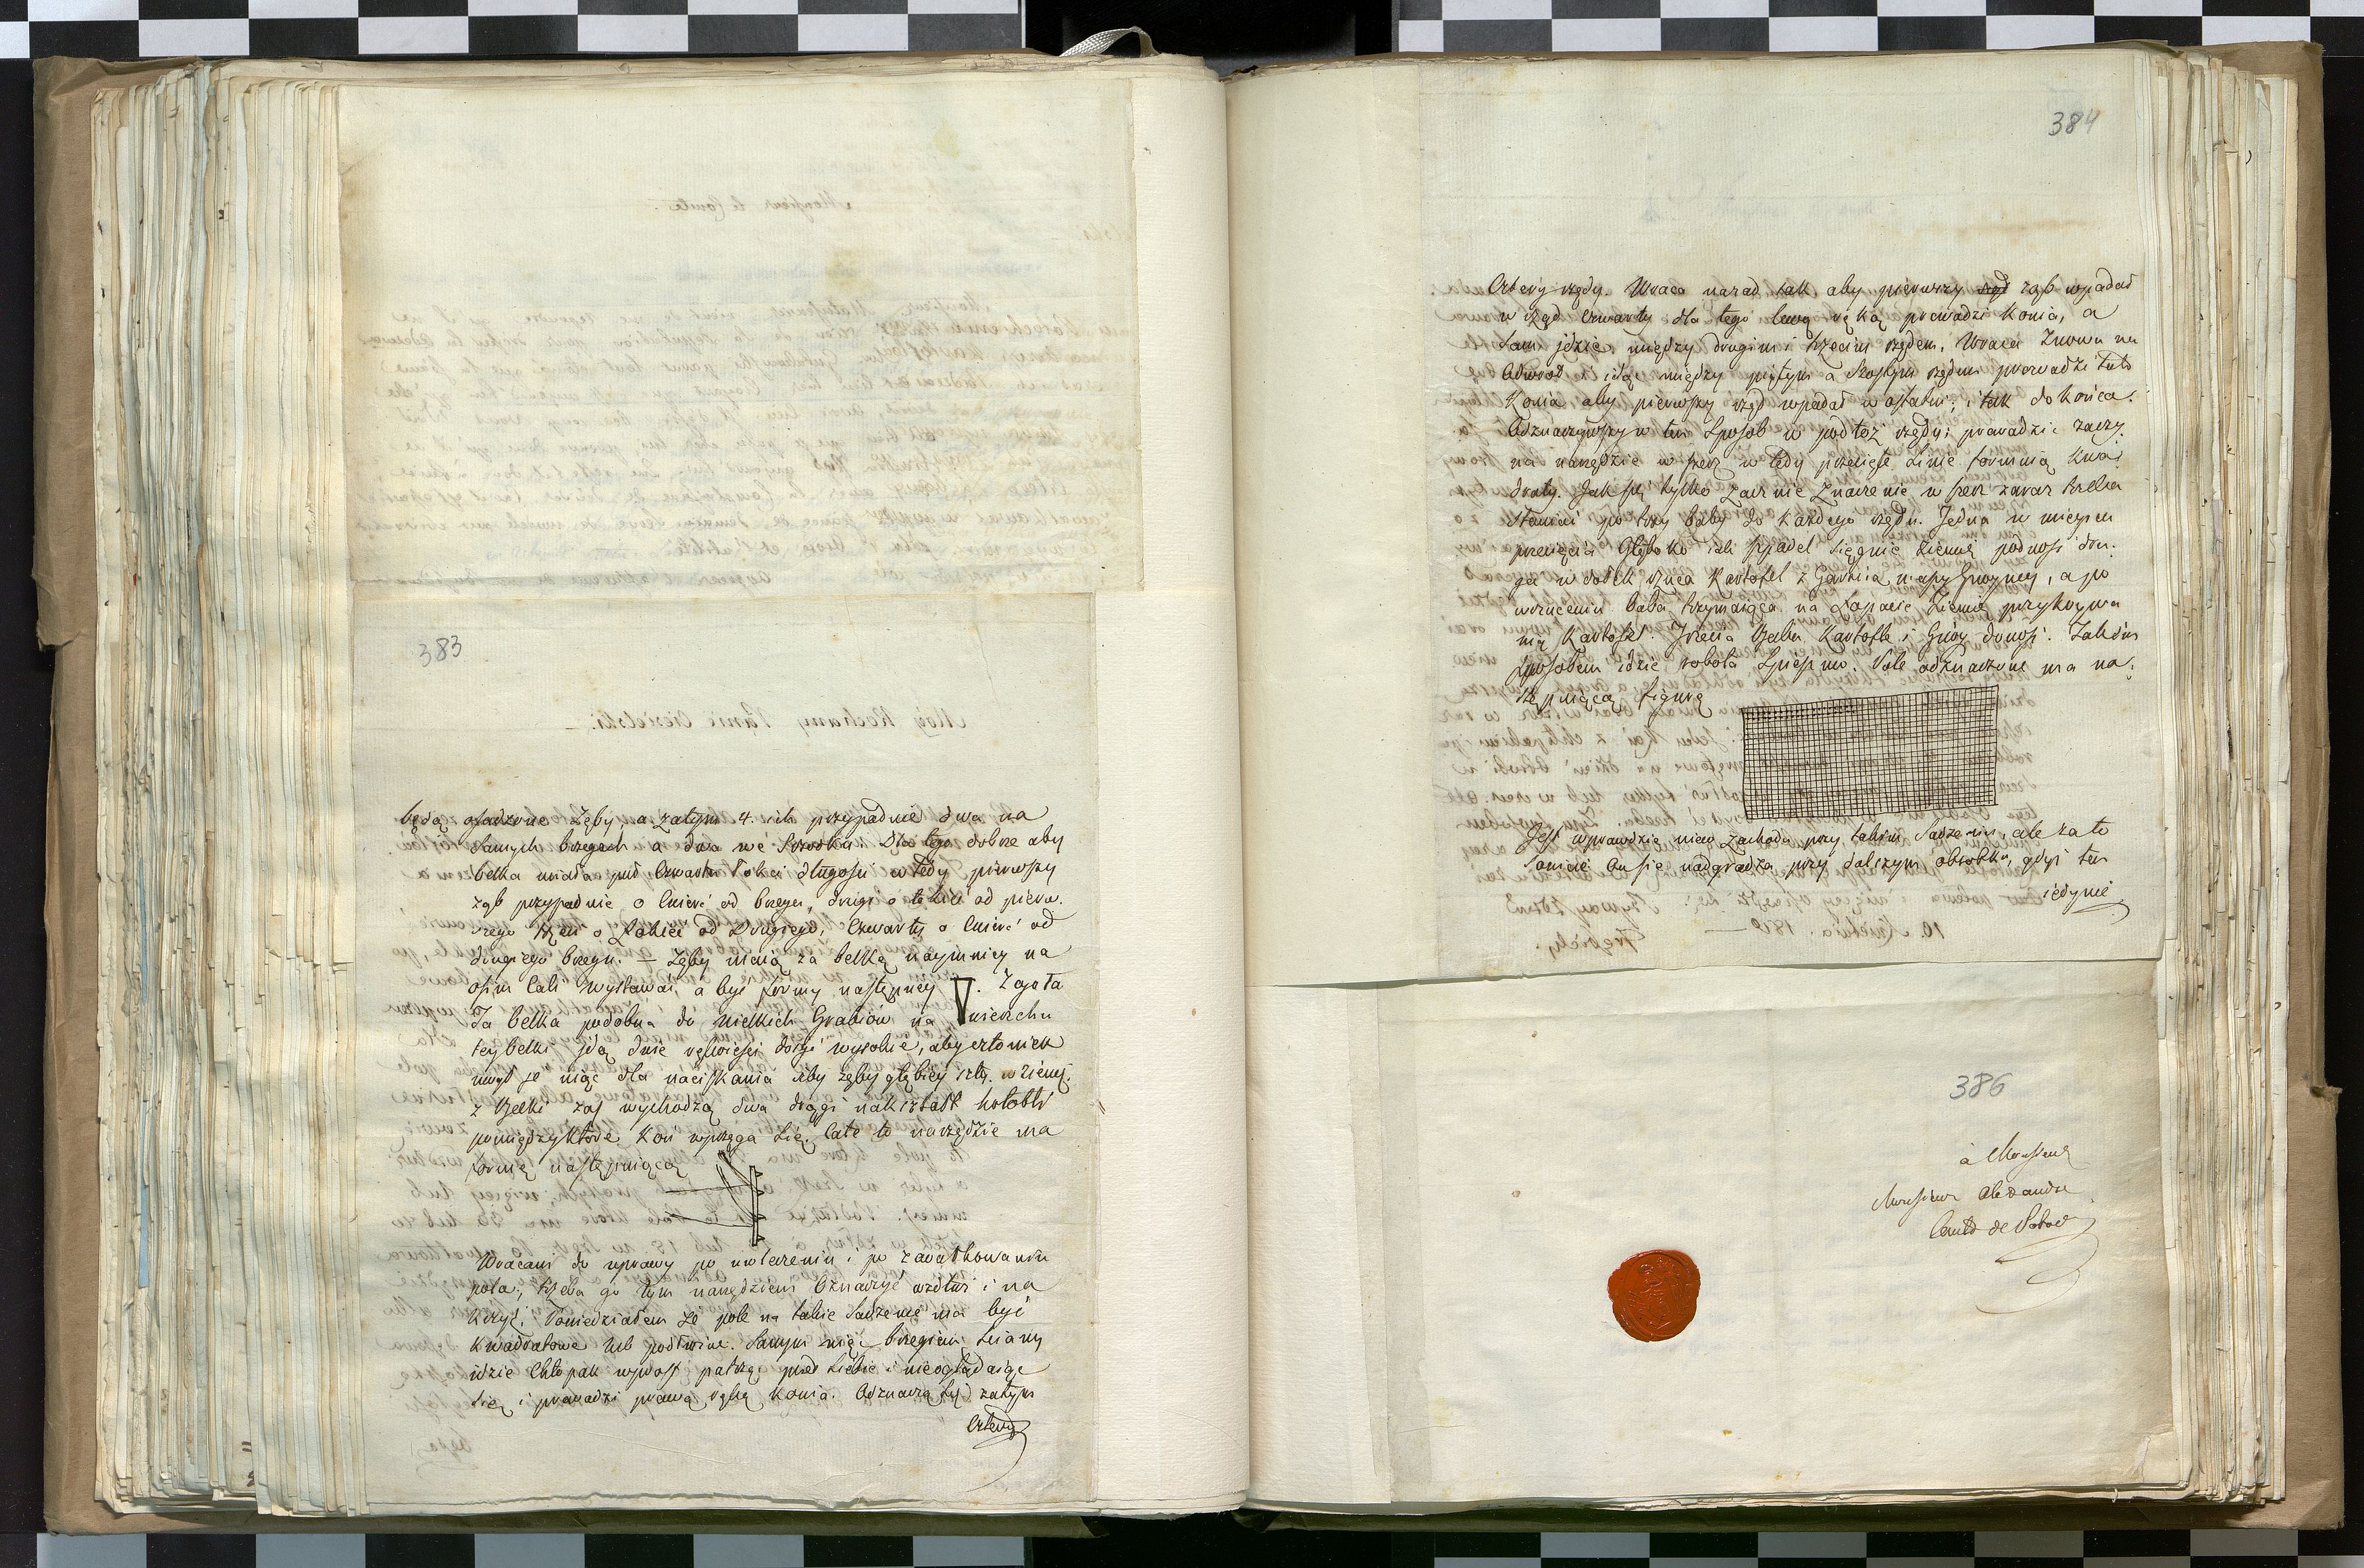 383
będą osadzone Zęby, a zatym 4. ich przypadnie dwa na
samych brzegach a dwa we Srzodku. Dla tego dobrze aby
belka miała puł czwarta łokci długości wtedy pierwszy
ząb przypadnie o ćwierć od brzegu, drugi o łokieć od pierw:
szego trzeci o Łokieć od Drugiego, Czwarty o ćwierć od
drugiego brzegu. — Zęby maią za belką naymniey na
ośm Cali wystawać, a być formy następney V. Zgoła
Ta belka podobna do wielkich Grabiów na wierzchu
tey belki idą dwie rękoieści dosyć wysokie, aby człowiek
mógł je wiąć dla naciskania aby zęby głębiey szły w ziemię.
z Belki zaś wychodzą dwa drągi nakształt hołobli
pomiędzy które Koń wprzęga się. Całe to narzędzie ma
formę następuiącą
Wracaiąc do uprawy po uwleczeniu i po zawałkowaniu
pola, trzeba go tym narzędziem Oznaczyć wzdłuż i na
krzyż. Powiedziałem że pole na takie Sadzenie ma być
kwadratowe lub podłużne. Samym więc brzegiem ściany
idzie Chłopak wprost patrząc przed siebie i nieoglądaiąc
się i prowadzi prawą ręką konia. Odznaczą się zatym
cztery
384
Cztery rzędy. Wraca nazad tak aby pierwszy ząb wpadał
w rząd Czwarty dla tego lewą ręką prowadzi konia, a
sam idzie między drugim i trzecim rzędem. Wraca Znowu na
Odwrot i idąc między piątym a Szostym rzędem prowadzi tak
Konia aby pierwszy rząd wpadał w ostatni; i tak do końca.
Odznaczywszy w ten Sposob w podłoż rzędy; prowadzić zaczy:
na narzędzie w szerz w tedy przecięte Linie formuią kwa:
draty. Jak się tylko zacznie Znaczenie w szerz zaraz trzeba
stawiać po trzy baby do każdego rzędu. Jedna w mieyscu
przecięcia Głęboko iak szpadel sięgnie ziemię podnosi dru:
ga w dołek rzuca Kartofel z Garścią mapy Gnoyney, a po
wrzuceniu baba trzymaiąca na Łopacie Ziemię przykrywa
nią Kartofel. Trzecia Babа Kartofle i Gnóy donosi. Takim
sposobem idzie robota Spieszno. Pole odznaczone ma na:
stępuiącą figurę
Jest wprawdzie nieco Zachodu przy takim Sadzeniu, ale za to
sowicie On się nadgradza przy dalszym obrobku, gdyż ten
iedynie
386
à Monsieur
Monsieur Alexandre
Comte de Potocki